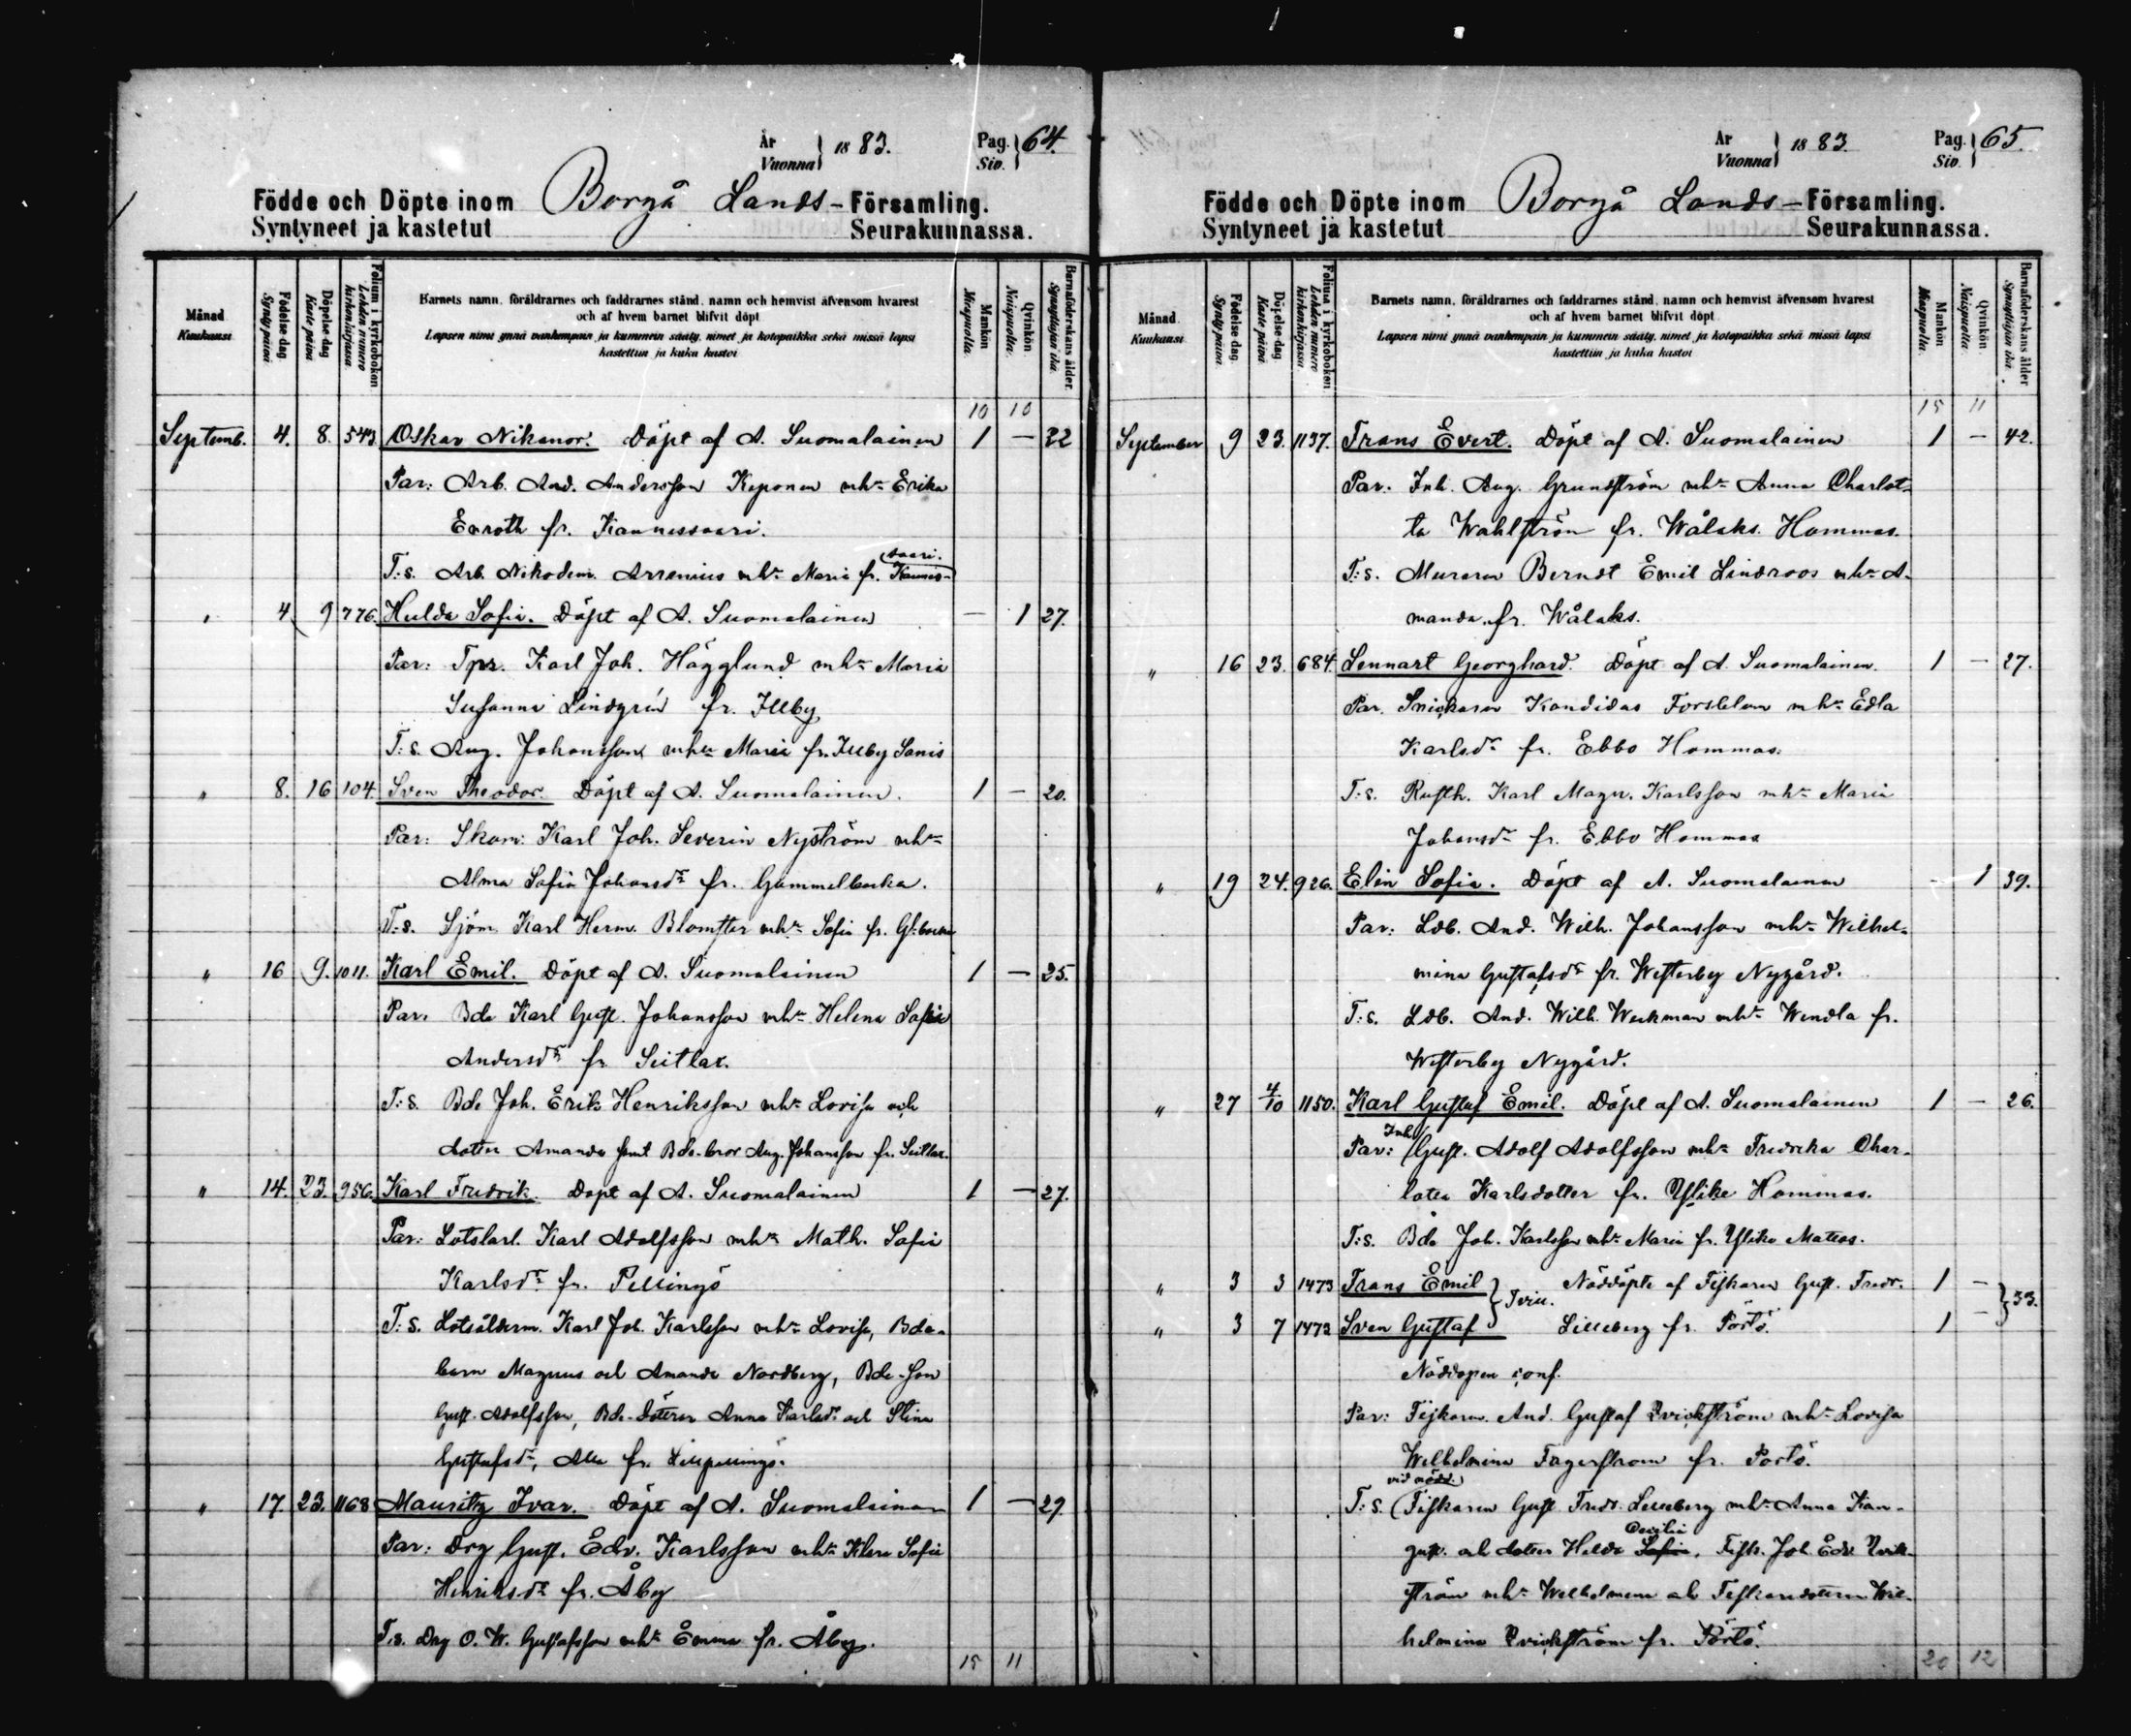 År
Vuonna } 18 83.
Pag.
Siv. } 64.
Födde och Döpte inom Borgå Lands- Församling.
Syntyneet ja kastetut Seurakunnassa.
Månad Kuukausi
Födelse dag Synty päivä
Döpelse dag Kaste päivä
Folium i kyrkoboken Lehden numero kirkonkirjassa
Barnets namn, föräldrarnes och faddrarnes stånd, namn och hemvist äfvensom hvarest
och af hvem barnet blifvit döpt
Lapsen nimi ynnä vanhempain ja kummein sääty, nimet ja kotopaikka sekä missä lapsi
kastettiin ja kuka kastoi
Mankön Miespuolia.
Qvinkön Naispuolia.
Barnaföderskans ålder. Synnyttäjän ikä.
10 10
Septemb. 4. 8. 543 Oskar Nikanor. Döpt af A. Suomalainen 1 — 32
Par: Arb. And. Andersson Keponen mhu Erika
Enroth fr. Kannussaari.
T:s. Arb. Nikodem. Arrenius mhu Maria fr. Kannus-
saari.
" 4 9 776. Hulda Sofia. Döpt af A. Suomalainen — 1 27.
Par: Tpr. Karl Joh. Högglund mhu Maria
Susanna Lindgrén fr. Illby
T:s. Aug. Johansson mhu Maria fr. Illby Sanis
" 8. 16 104. Sven Theodor. Döpt af A. Suomalainen. 1 — 20.
Par: Skom: Karl Joh. Severin Nyström mhu
Alma Sofia Johansdr fr. Gammelbacka.
T:s. Sjöm. Karl Herm. Blomster mhu Sofia fr. Gl:backa
" 16 9. 1011. Karl Emil. Döpt af A. Suomalainen 1 — 25.
Par. Bde Karl Gust. Johansson mhu Helena Sofia
Andersdr fr Seitlax.
T:s. Bde Joh. Erik Henriksson mhu Lovisa och
dotter Amanda samt Bde-bror Aug. Johansson fr. Seitlax.
" 14. 23. 956. Karl Fredrik. Döpt af A. Suomalainen 1 — 27.
Par: Lotslärl. Karl Adolfsson mhu Math. Sofia
Karlsdr fr. Pellinge
T:s. Lotsålderm. Karl Joh. Karlsson mhu Lovisa, Bde-
barn Magnus och Amanda Nordberg, Bde-son
Gust. Adolfsson, Bde-döttrar Anna Karlsdr och Stina
Gustafsdr, Alla fr. Lillpellinge.
" 17. 23. 1168 Mauritz Ivar. Döpt af A. Suomalainen 1 — 29.
Par: Drg Gust. Edv. Karlsson mhu Klara Sofia
Henriksdr fr. Åby
T:s. Drg O. W. Gustafsson mhu Emma fr. Åby.
15 11
År
Vuonna } 18 83.
Pag.
Siv. } 65.
Födde och Döpte inom Borgå Lands- Församling.
Syntyneet ja kastetut Seurakunnassa.
Månad Kuukausi
Födelse dag Synty päivä
Döpelse dag Kaste päivä
Folium i kyrkoboken Lehden numero kirkonkirjassa
Barnets namn, föräldrarnes och faddrarnes stånd, namn och hemvist äfvensom hvarest
och af hvem barnet blifvit döpt
Lapsen nimi ynnä vanhempain ja kummein sääty, nimet ja kotopaikka sekä missä lapsi
kastettiin ja kuka kastoi
Mankön Miespuolia.
Qvinkön Naispuolia.
Barnaföderskans ålder Synnyttäjän ikä
15 11
September 9 23. 1137. Frans Evert. Döpt af A. Suomalainen 1 — 42.
Par. Inh. Aug. Grundström mhu Anna Charlot-
ta Wahlström fr. Wålaks. Hommas.
T:s. Muraren Berndt Emil Lindroos mhu A-
manda fr. Wålaks.
" 16 23. 684. Lennart Georghard. Döpt af A. Suomalainen. 1 — 27.
Par. Snickaren Kandidas Forsblom mhu Edla
Karlsdr fr. Ebbo Hommas.
T:s. Rusth. Karl Magn. Karlsson mhu Maria
Johansdr fr. Ebbo Hommas
" 19 24. 926. Elin Sofia. Döpt af A. Suomalainen — 1 39.
Par: Ldb. And. Wilh. Johansson mhu Wilhel-
mina Gustafsdr fr. Westerby Nygård.
T:s. Ldb. And. Wilh. Weckman mhu Wendla fr.
Westerby Nygård.
" 27 4/10 1150. Karl Gustaf Emil. Döpt af A. Suomalainen 1 — 26.
Par: Inh. Gust. Adolf Adolfsson mhu Fredrika Char-
lotta Karlsdotter fr. Ylike Hommas.
T:s. Bde Joh. Karlsson mhu Maria fr. Ylike Mattas.
" 3 3 1473 Frans Emil } Tvill. Nöddöpte af Fiskaren Gust. Fredr. 1 — } 33.
" 3 7 1473 Sven Gustaf Lilleberg fr. Pörtö. 1 —
Nöddopen conf.
Par: Fiskaren And. Gustaf Qvickström mhu Lovisa
Wilhelmina Fagerström fr. Pörtö.
vid nödd.
T:s. (Fiskaren Gust. Fredr. Lilleberg mhu Anna Kan-
gas. och dotter Hilda Sofia Cecilia, Fisk. Joh. Edv. Qvick-
ström mhu Wilhelmina och Fiskaredottren Wil-
helmina Qvickström fr. Pörtö.
20 12